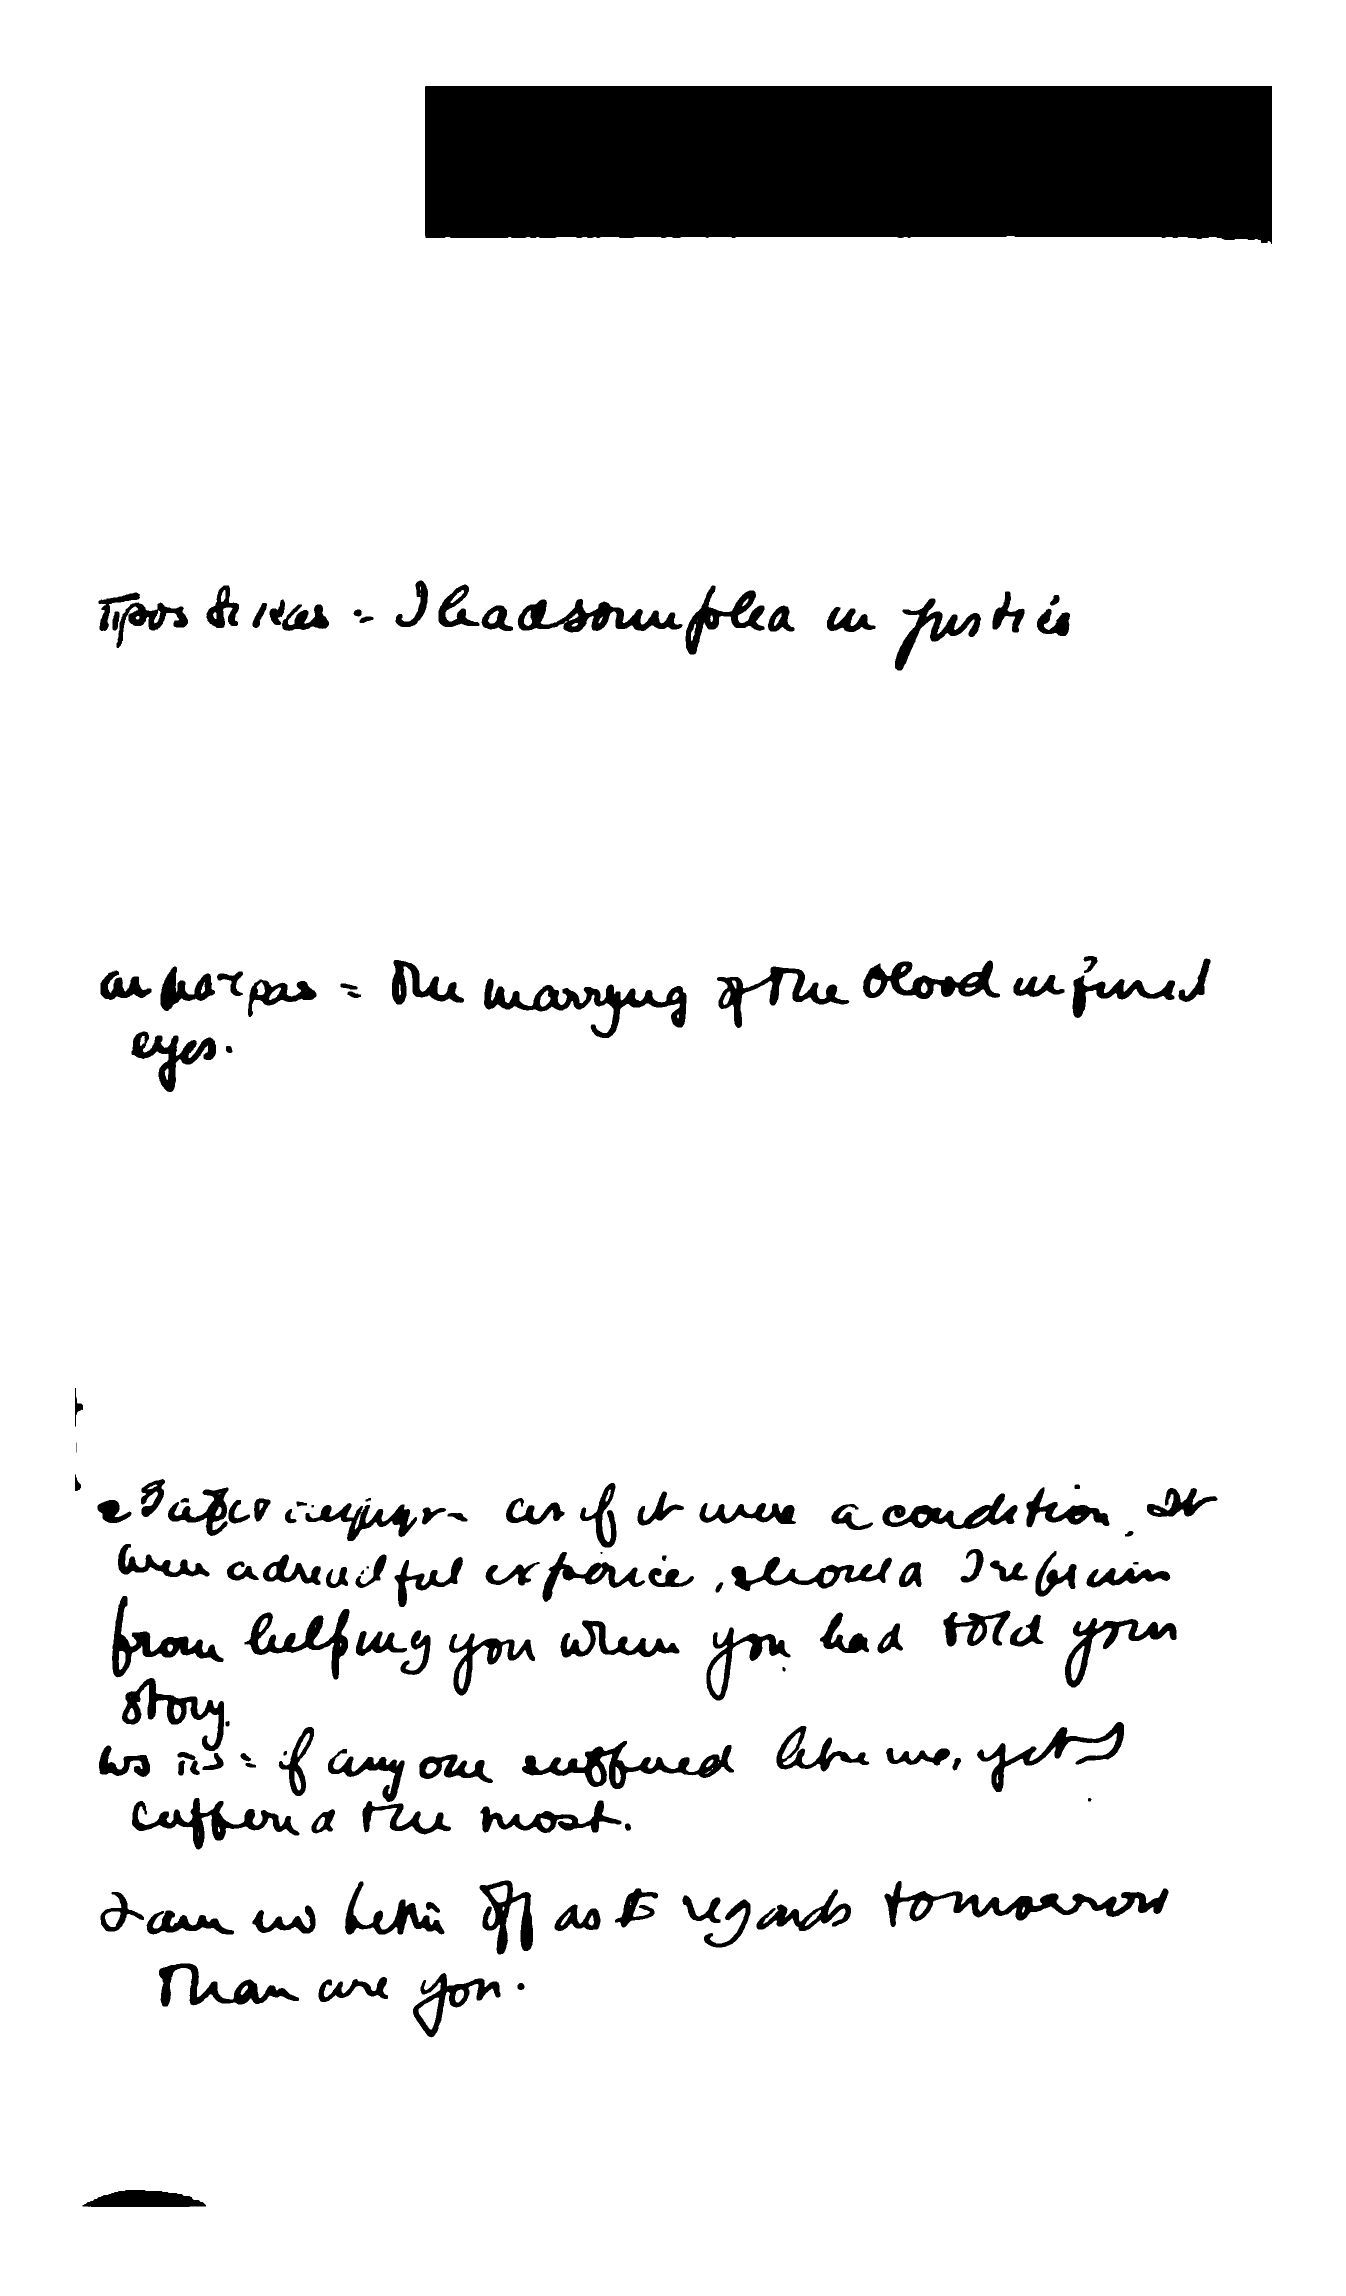 προς δικας = I had some plea in justice
αιματηρας = the marrying of the blood infused
eyes.
εξαφισταιμην - as if it were a condition. It
were a dreadful experience, should I refrain
from helping you when you had told your
story.
ως τις = if any one suffered like me, yet I
suffered the most.
I am no better off as to regards tomorrow
than are you.